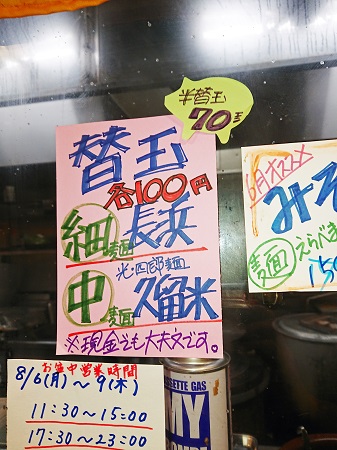 半替玉
70円
替玉
各100円
細麺 長浜
光・四郎麺
中麺 久留米
※現金でも大丈夫です。
6月オススメ
みそ
麺 えらべま
150
お盆中営業時間
8/6(月)～9(木)
11:30～15:00
17:30～23:00
SETTE GAS
MY